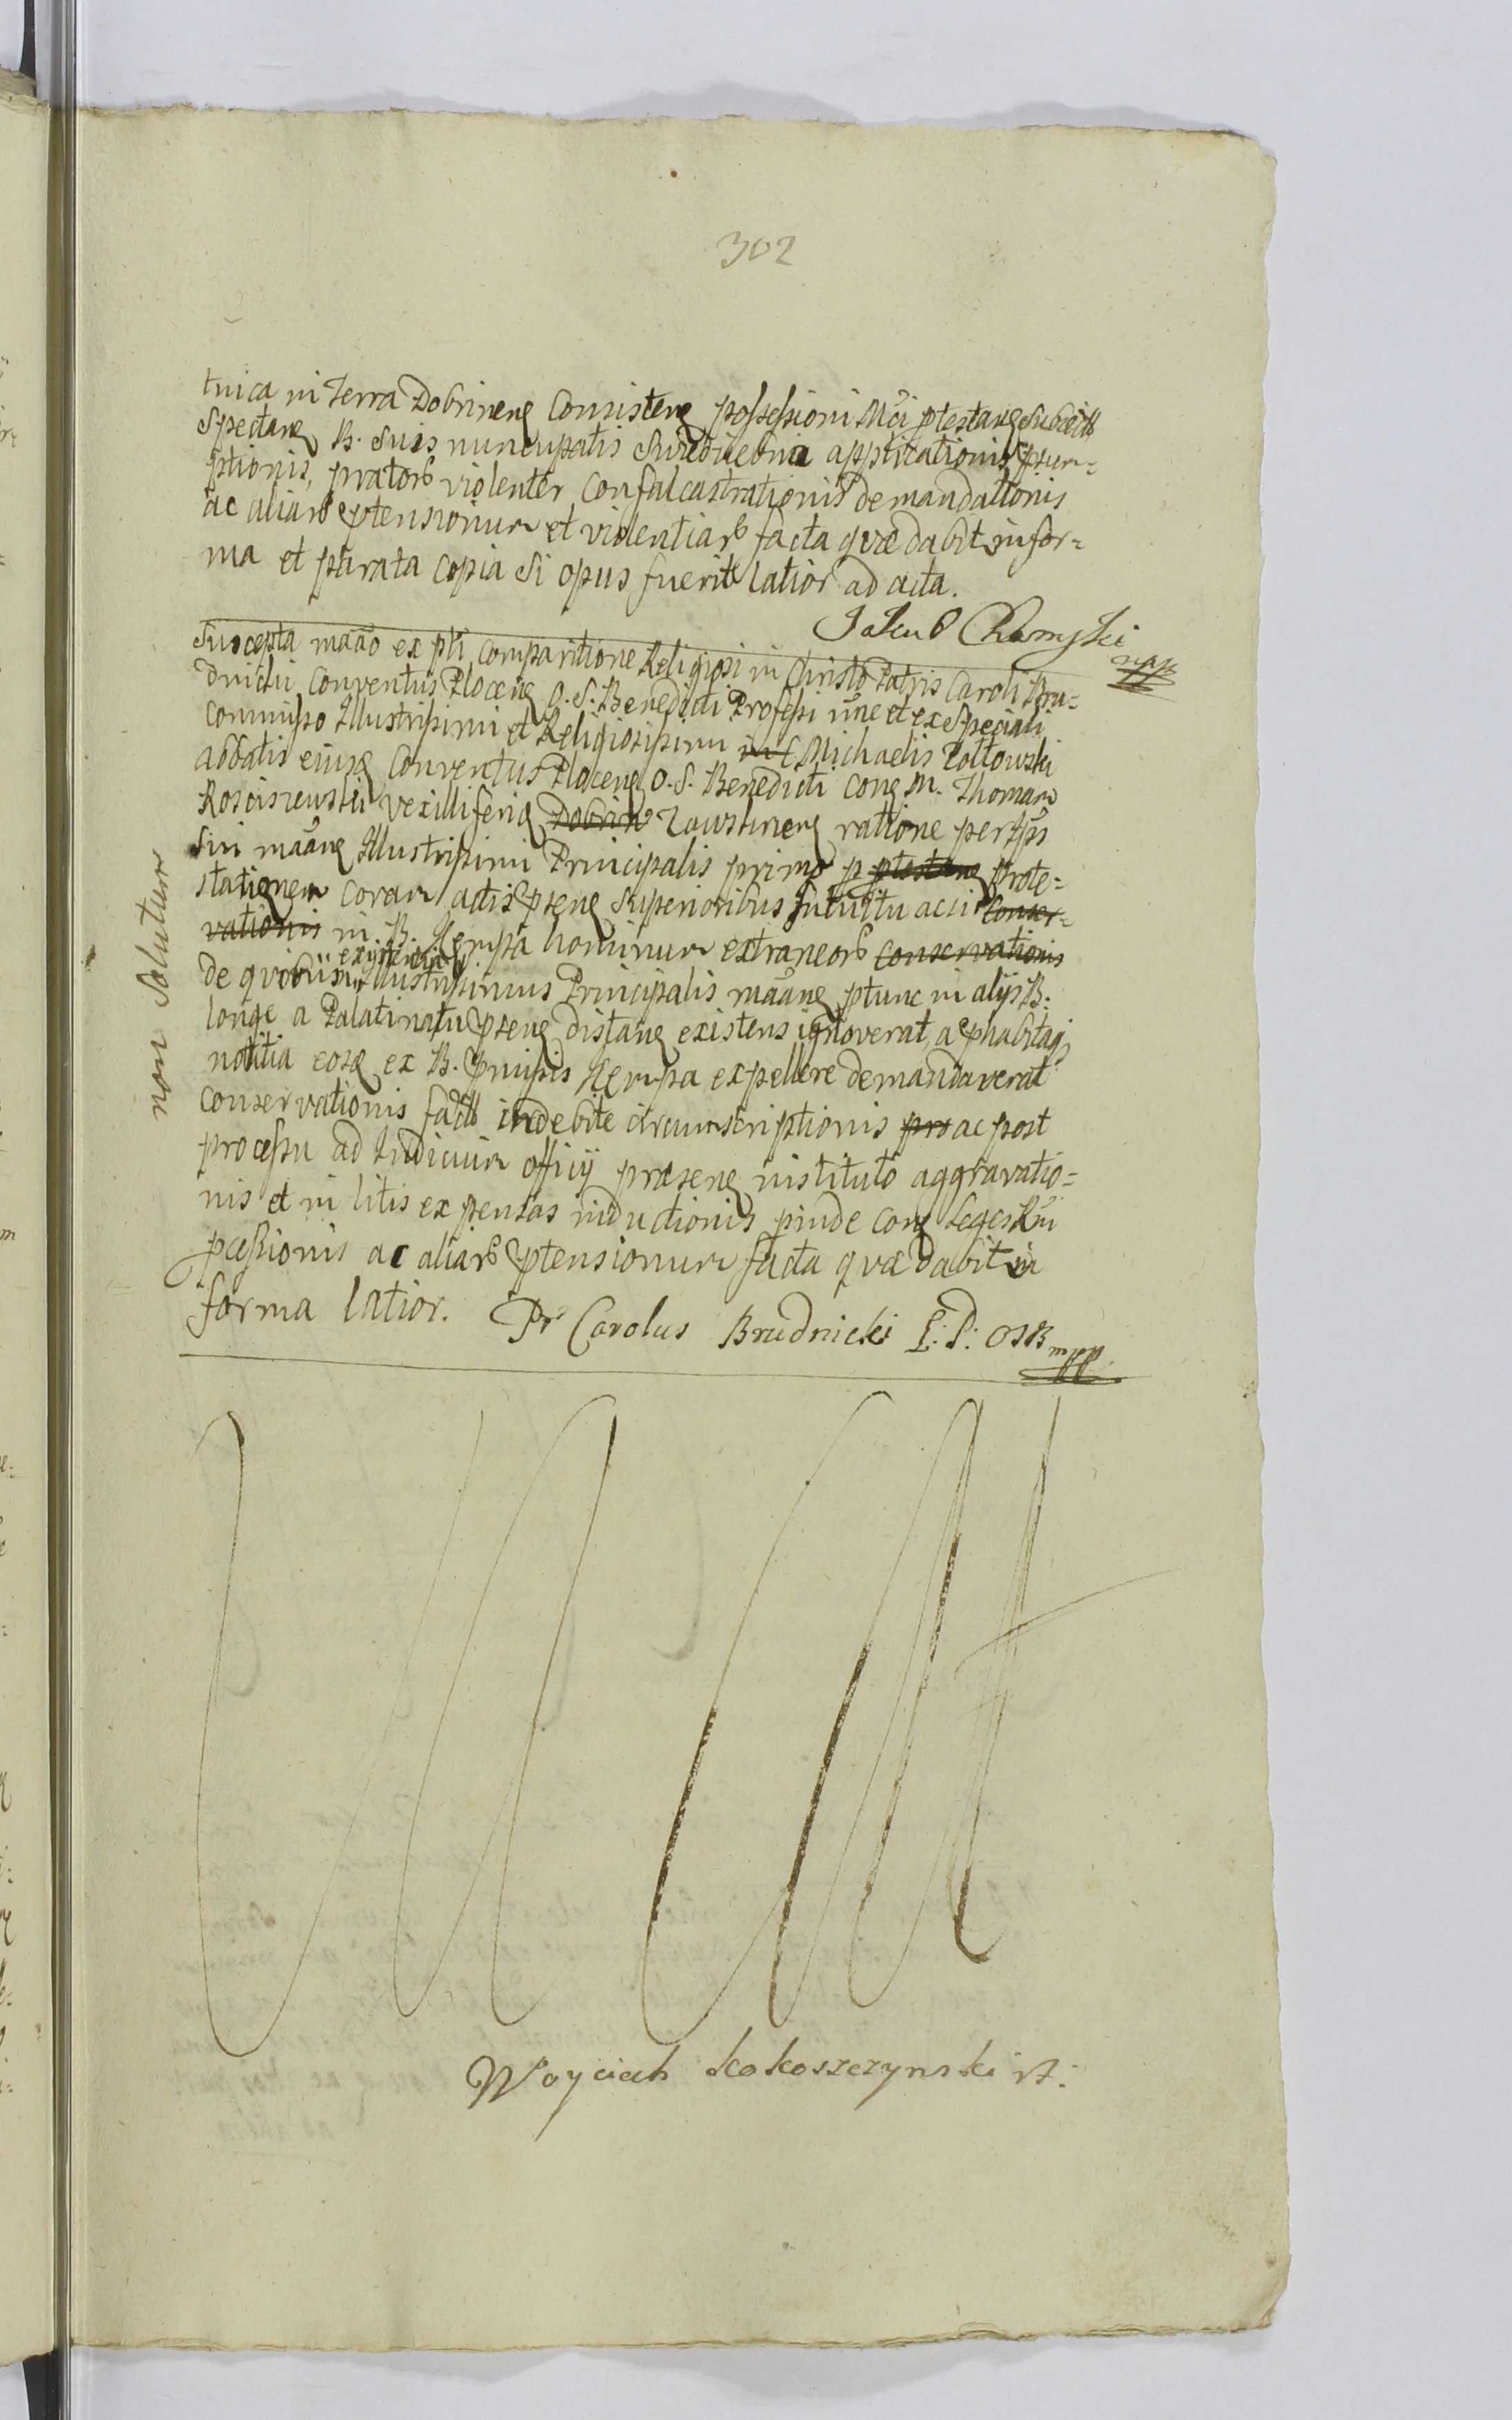 302
tnica in Terra Dobrinenẹ Consistenẹ possessioni Mci ptestanẹ subiectb
Spectanẹ B. suis nuncupatis applicationis, psum=
ptionis, pratorb violenter Confalcastrationis demandationis
ac aliarb ptensionum et violentiarb facta quæ dabit in for=
ma et parata copia si opus fuerit latior ad acta.
Jakub Chamski mpp
Suscepta maão ex pti Comparitione Religiosi in Christo Patris Caroli Bru=
dnicki Conventus Plocenẹ O. S. Benedicti Professi nne et ex speciali
Commisso Illustrissimi et Religiosissimi Michaelis Zoltowski
abbatis eiusẹ Conventus Plocenẹ O. S. Benedicti Conẹ M. Thomam
Rosciszewski vexilliferũ Dobrin Zawskrenẹ ratione per
sui maãnẹ Illustrissimi Principalis primo p ptestanẹ prote=
stationem coram actis psenẹ Superioribus intuitu acsi Conser=
vationis in B. Kempa hominum extraneorb Conservationis
existentia
de quibus Illustrissimus Principalis maãnẹ ptunc in alijs B.
longe a Palatinatu psenẹ distanẹ existens ignoverat, a phabita
notitia eosẹ ex B. pmissis Kempa expellere demandaverat
Conservationis factb indebite circumscriptionis pro ac post
processu ad Iudicium officij præsenẹ instituto aggravatio=
nis et in litis expensas inductionis pinde Conẹ Leges Rni
pcessionis ac aliarb ptensionum facta quæ dabit in
forma latior. Pr Carolus Brudnicki P: P: OSB mpp
non solutum
Woyciech Kokoszczynski